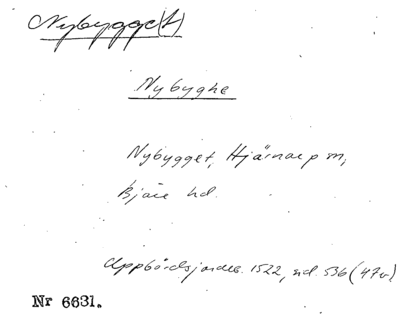 Nybygge(t)
Nybyghe
Nybygget, Hjärnarp sn,
Bjäre hd.
Uppbördsjordeb. 1522, sid. 536 (47v)
Nr 6631.